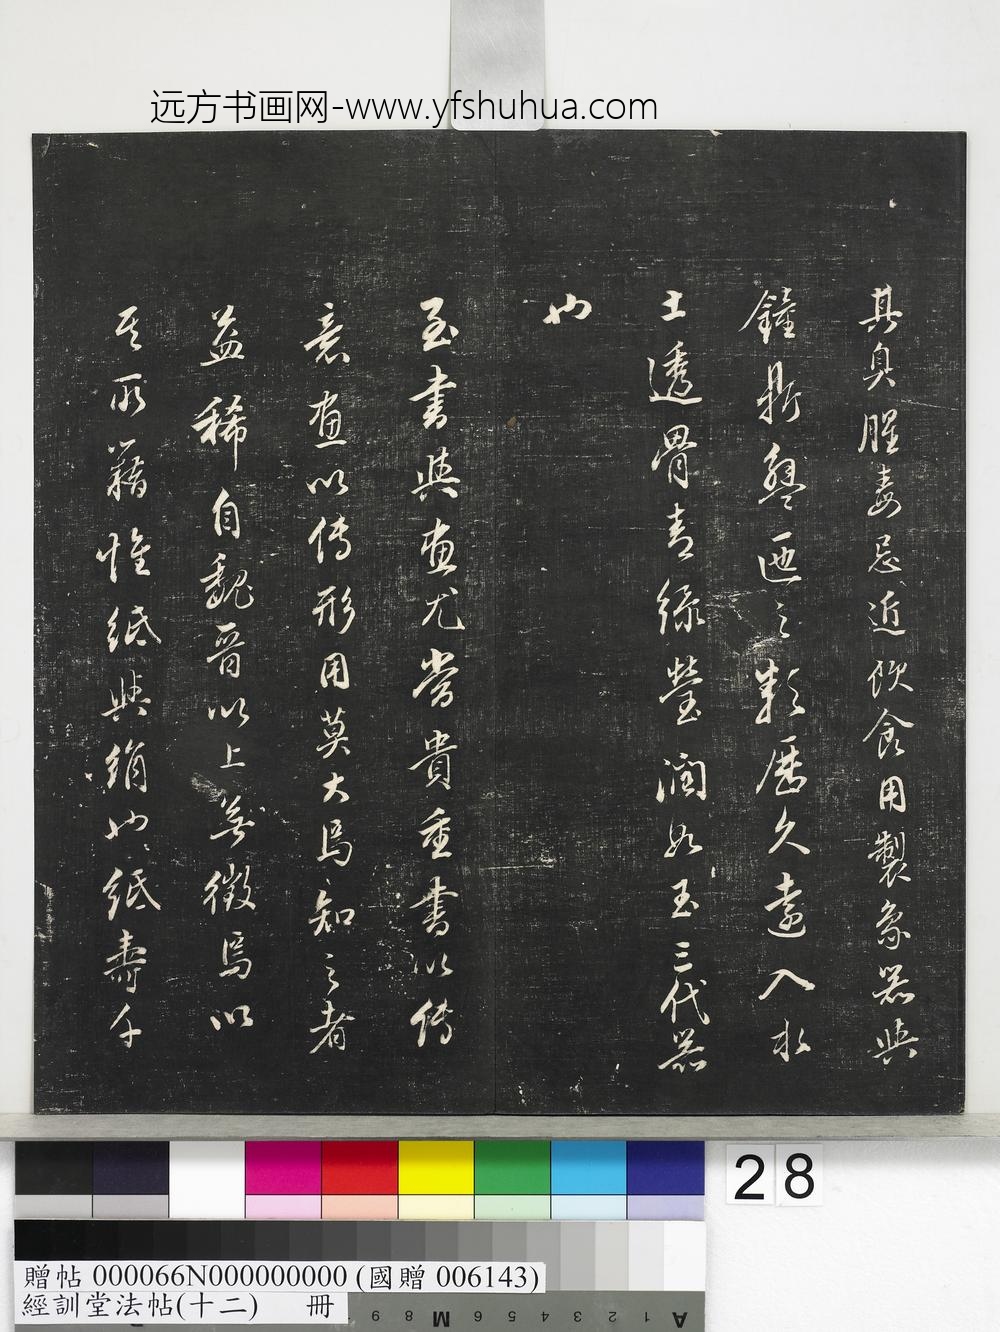 远方书画网-www.yfshuhua.com
其臭腥毒忌近飲食用製象器與
鐘鼎盤匜之類歷久遠入水
土透骨青綠瑩潤如玉三代器
也
至書與畫尤當貴重書以傳
意畫以傳形用莫大焉知之者
益稀自魏晉以上無徵焉以
其所藉惟紙與絹也紙壽千
28
贈帖 000066N000000000 (國贈 006143)
經訓堂法帖(十二) 冊
A 1 2 3 4 5 6 M 8 9